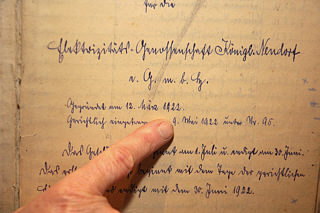 für die
Elektrizitäts-Genossenschaft Königl. Neudorf
e. G. m. b. H.
Gegründet am 12. März 1922.
Gerichtlich eingetragen 9. Mai 1922 unter Nr. 95.
Das Ge am 1. Juli u. endigt am 30. Juni.
Das er beginnt mit dem Tage der gerichtlichen
und endigt mit dem 30. Juni 1922.